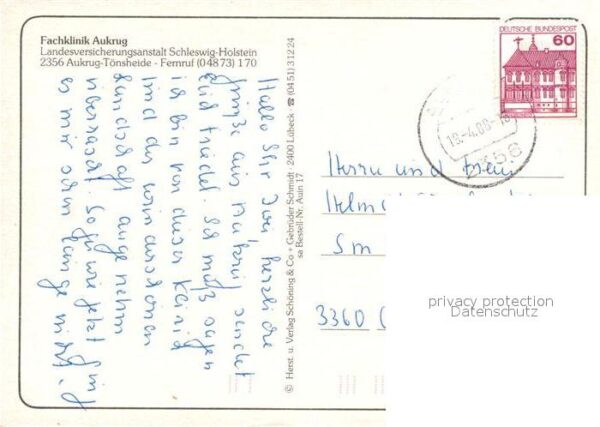 Fachklinik Aukrug
Landesversicherungsanstalt Schleswig-Holstein
2356 Aukrug-Tönsheide - Fernruf (04873) 170
DEUTSCHE BUNDESPOST
60
2356
Hallo Ihr zwei, herzliche
Grüße aus Aukrug sendet
Euch Friedel. Ich muß sagen
ich bin von dieser Klinik
und der wunderschönen
Landschaft angenehm
überrascht. So gut wie jetzt ging
es mir schon lange nicht.
© Herst. u. Verlag Schöning & Co + Gebrüder Schmidt · 2400 Lübeck ☎ (0451) 31224
sa Bestell-Nr. Auin 17
Herrn und Frau
Helm
Sm
3360
privacy protection
Datenschutz